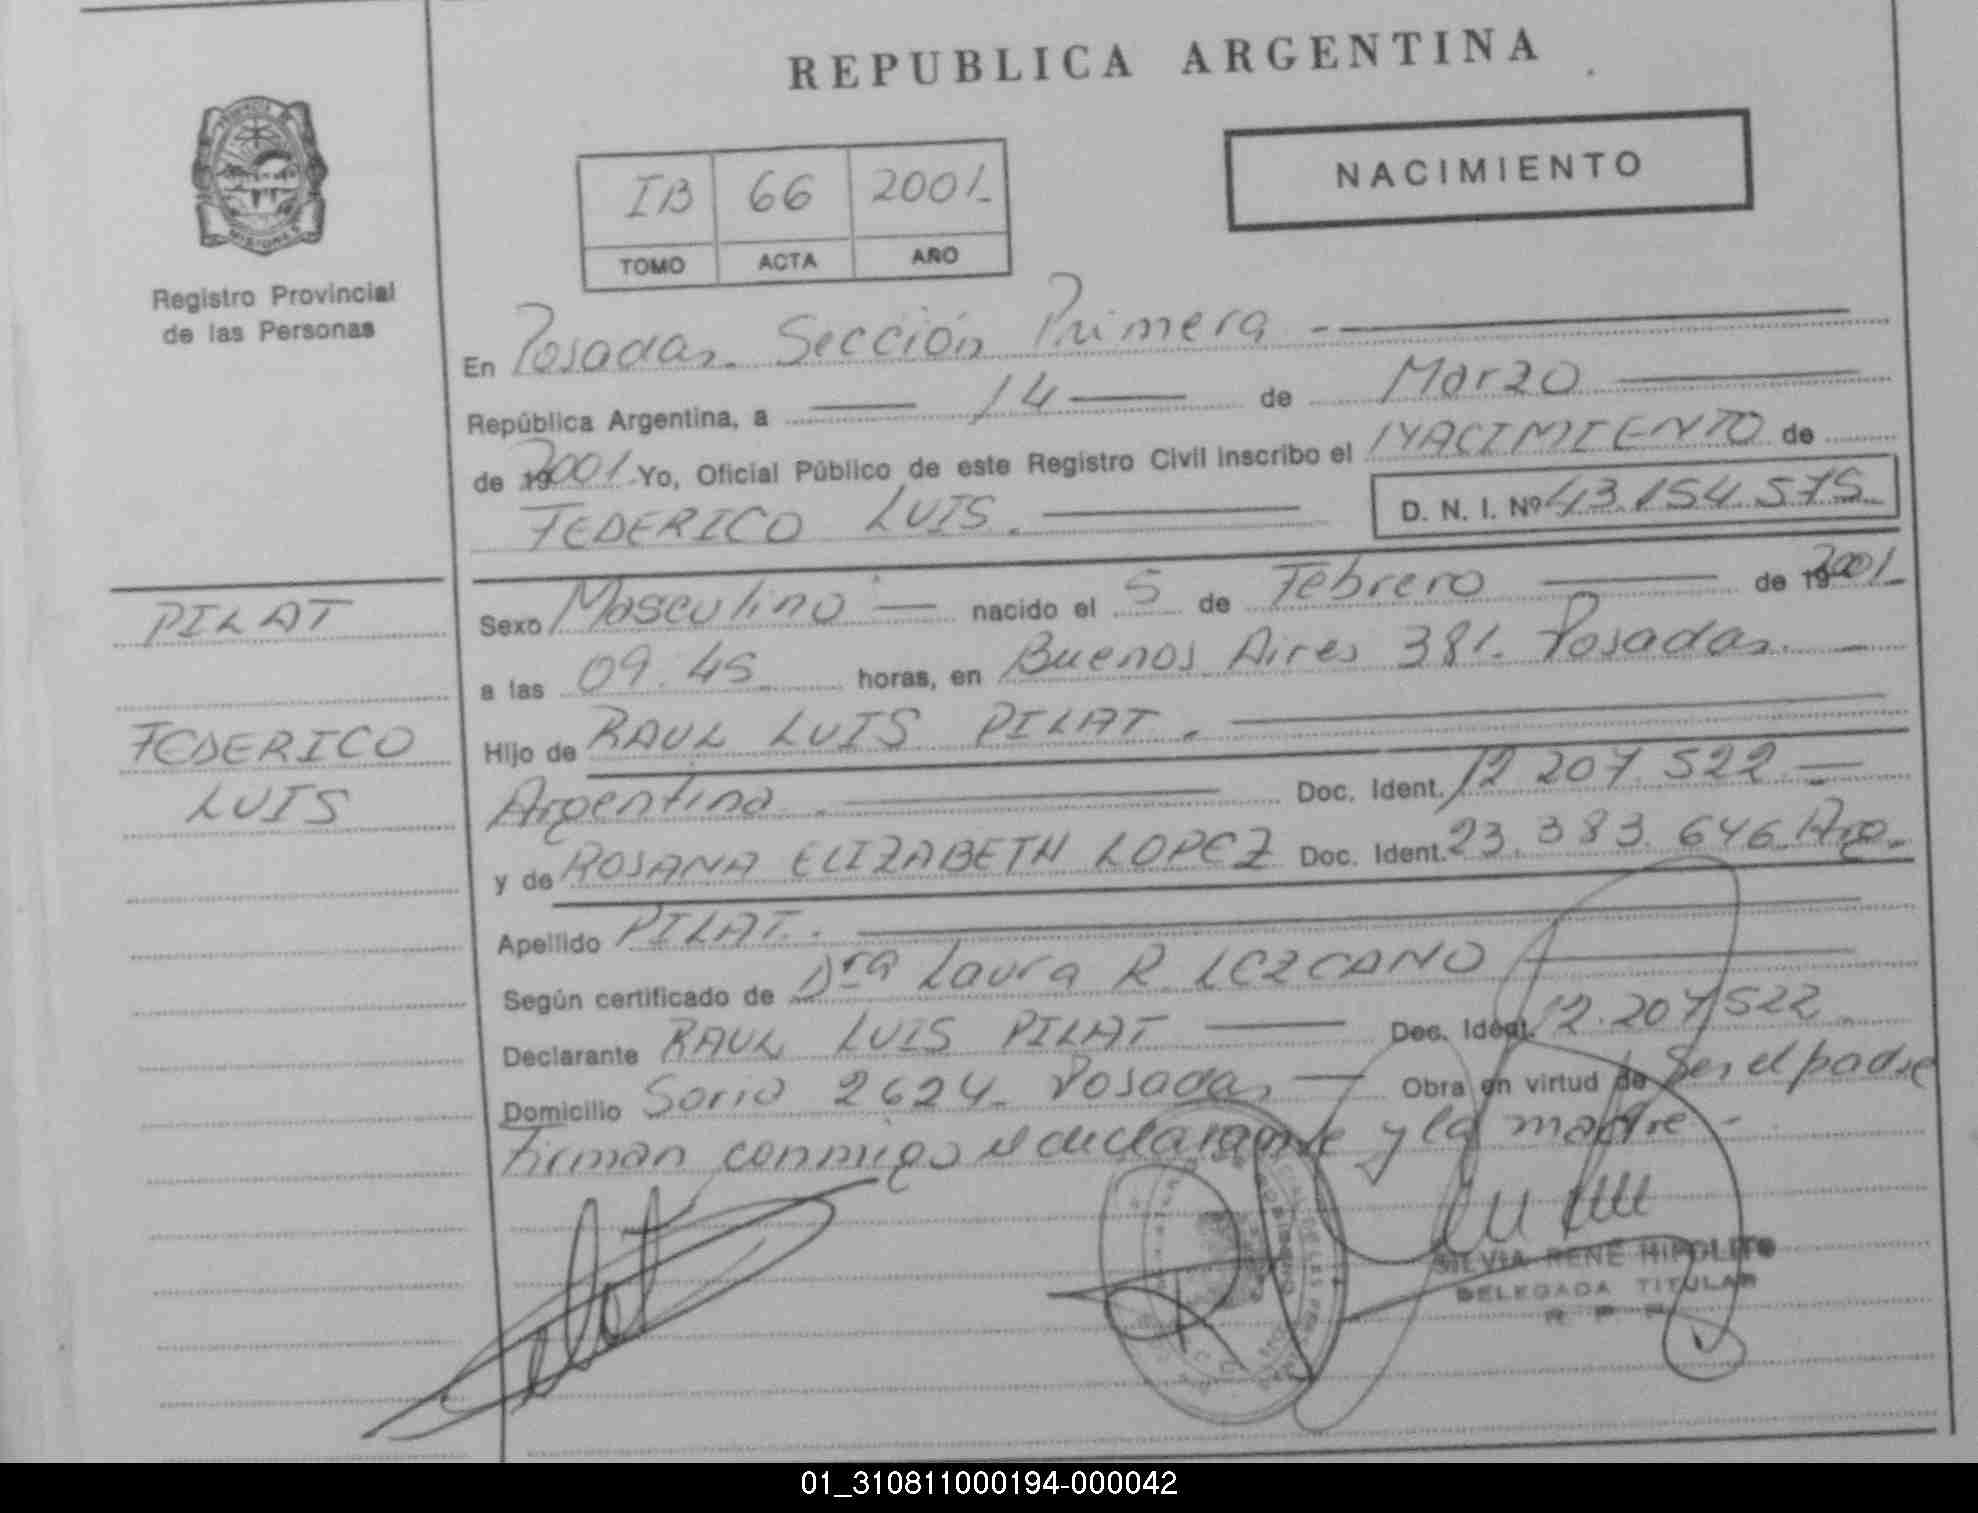 REPUBLICA ARGENTINA
PROVINCIA DE
MISIONES
Registro Provincial
de las Personas
NACIMIENTO
IB 66 2001
TOMO ACTA AÑO
En Posadas. Sección Primera
República Argentina, a 14 de Marzo
de 192001 Yo, Oficial Público de este Registro Civil inscribo el NACIMIENTO de
FEDERICO LUIS. D. N. I. Nº 43.154.575
PILAT
FEDERICO
LUIS
Sexo Masculino nacido el 5 de Febrero de 192001
a las 09.45 horas, en Buenos Aires 381. Posadas.
Hijo de RAUL LUIS PILAT.
Argentina. Doc. Ident. 12.207.522
y de ROSANA ELIZABETH LOPEZ Doc. Ident. 23.383.646 Arg.
Apellido PILAT.
Según certificado de Dra Laura R. LEZCANO
Declarante RAUL LUIS PILAT Doc. Ident. 12.207.522
Domicilio Soria 2624. Posadas Obra en virtud de ser el padre
Firman conmigo el declarante y la madre
SILVIA RENÉ HIPOLITO
DELEGADA TITULAR
R. P. P.
01_310811000194-000042